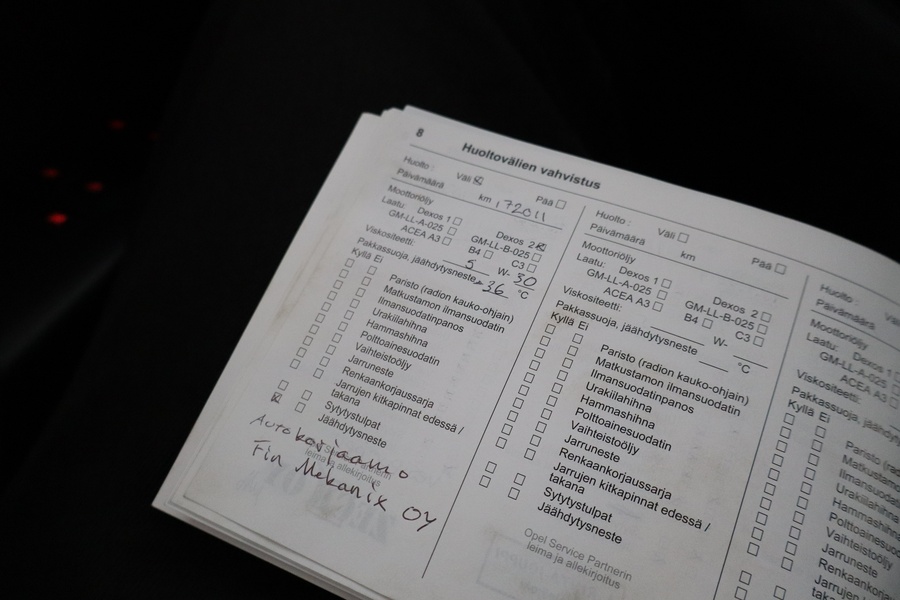 8
Huoltovälien vahvistus
Huolto : Väli ☒ Pää ☐
Päivämäärä km 172011
Moottoriöljy
Laatu: Dexos 1 ☐ Dexos 2 ☒
GM-LL-A-025 ☐ GM-LL-B-025 ☐
ACEA A3 ☐ B4 ☐ C3 ☐
Viskositeetti: 5 W- 30
Pakkassuoja, jäähdytysneste -36 °C
Kyllä Ei
Paristo (radion kauko-ohjain)
Matkustamon ilmansuodatin
Ilmansuodatinpanos
Urakiilahihna
Hammashihna
Polttoainesuodatin
Vaihteistoöljy
Jarruneste
Renkaankorjaussarja
Jarrujen kitkapinnat edessä /
takana
Sytytystulpat
Jäähdytysneste
Autokorjaamo
leima ja allekirjoitus
Fin Mekanix OY
Huolto : Väli ☐ Pää ☐
Päivämäärä km
Moottoriöljy
Laatu: Dexos 1 ☐ Dexos 2 ☐
GM-LL-A-025 ☐ GM-LL-B-025 ☐
ACEA A3 ☐ B4 ☐ C3 ☐
Viskositeetti: W-
Pakkassuoja, jäähdytysneste °C
Kyllä Ei
Paristo (radion kauko-ohjain)
Matkustamon ilmansuodatin
Ilmansuodatinpanos
Urakiilahihna
Hammashihna
Polttoainesuodatin
Vaihteistoöljy
Jarruneste
Renkaankorjaussarja
Jarrujen kitkapinnat edessä /
takana
Sytytystulpat
Jäähdytysneste
Opel Service Partnerin
leima ja allekirjoitus
Huolto :
Päivämäärä
Moottoriöljy
Laatu: Dexos 1
GM-LL-A-025
ACEA A3
Viskositeetti:
Pakkassuoja,
Kyllä Ei
Paristo
Ilmansuodatinp
Urakiilahihna
Hammashihna
Vaihteistoöljy
Jarruneste
Jarrujen
takana